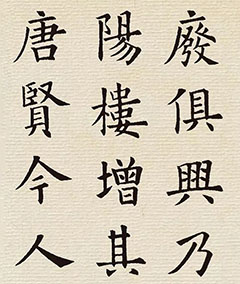 廢俱興乃
陽樓增其
唐賢今人